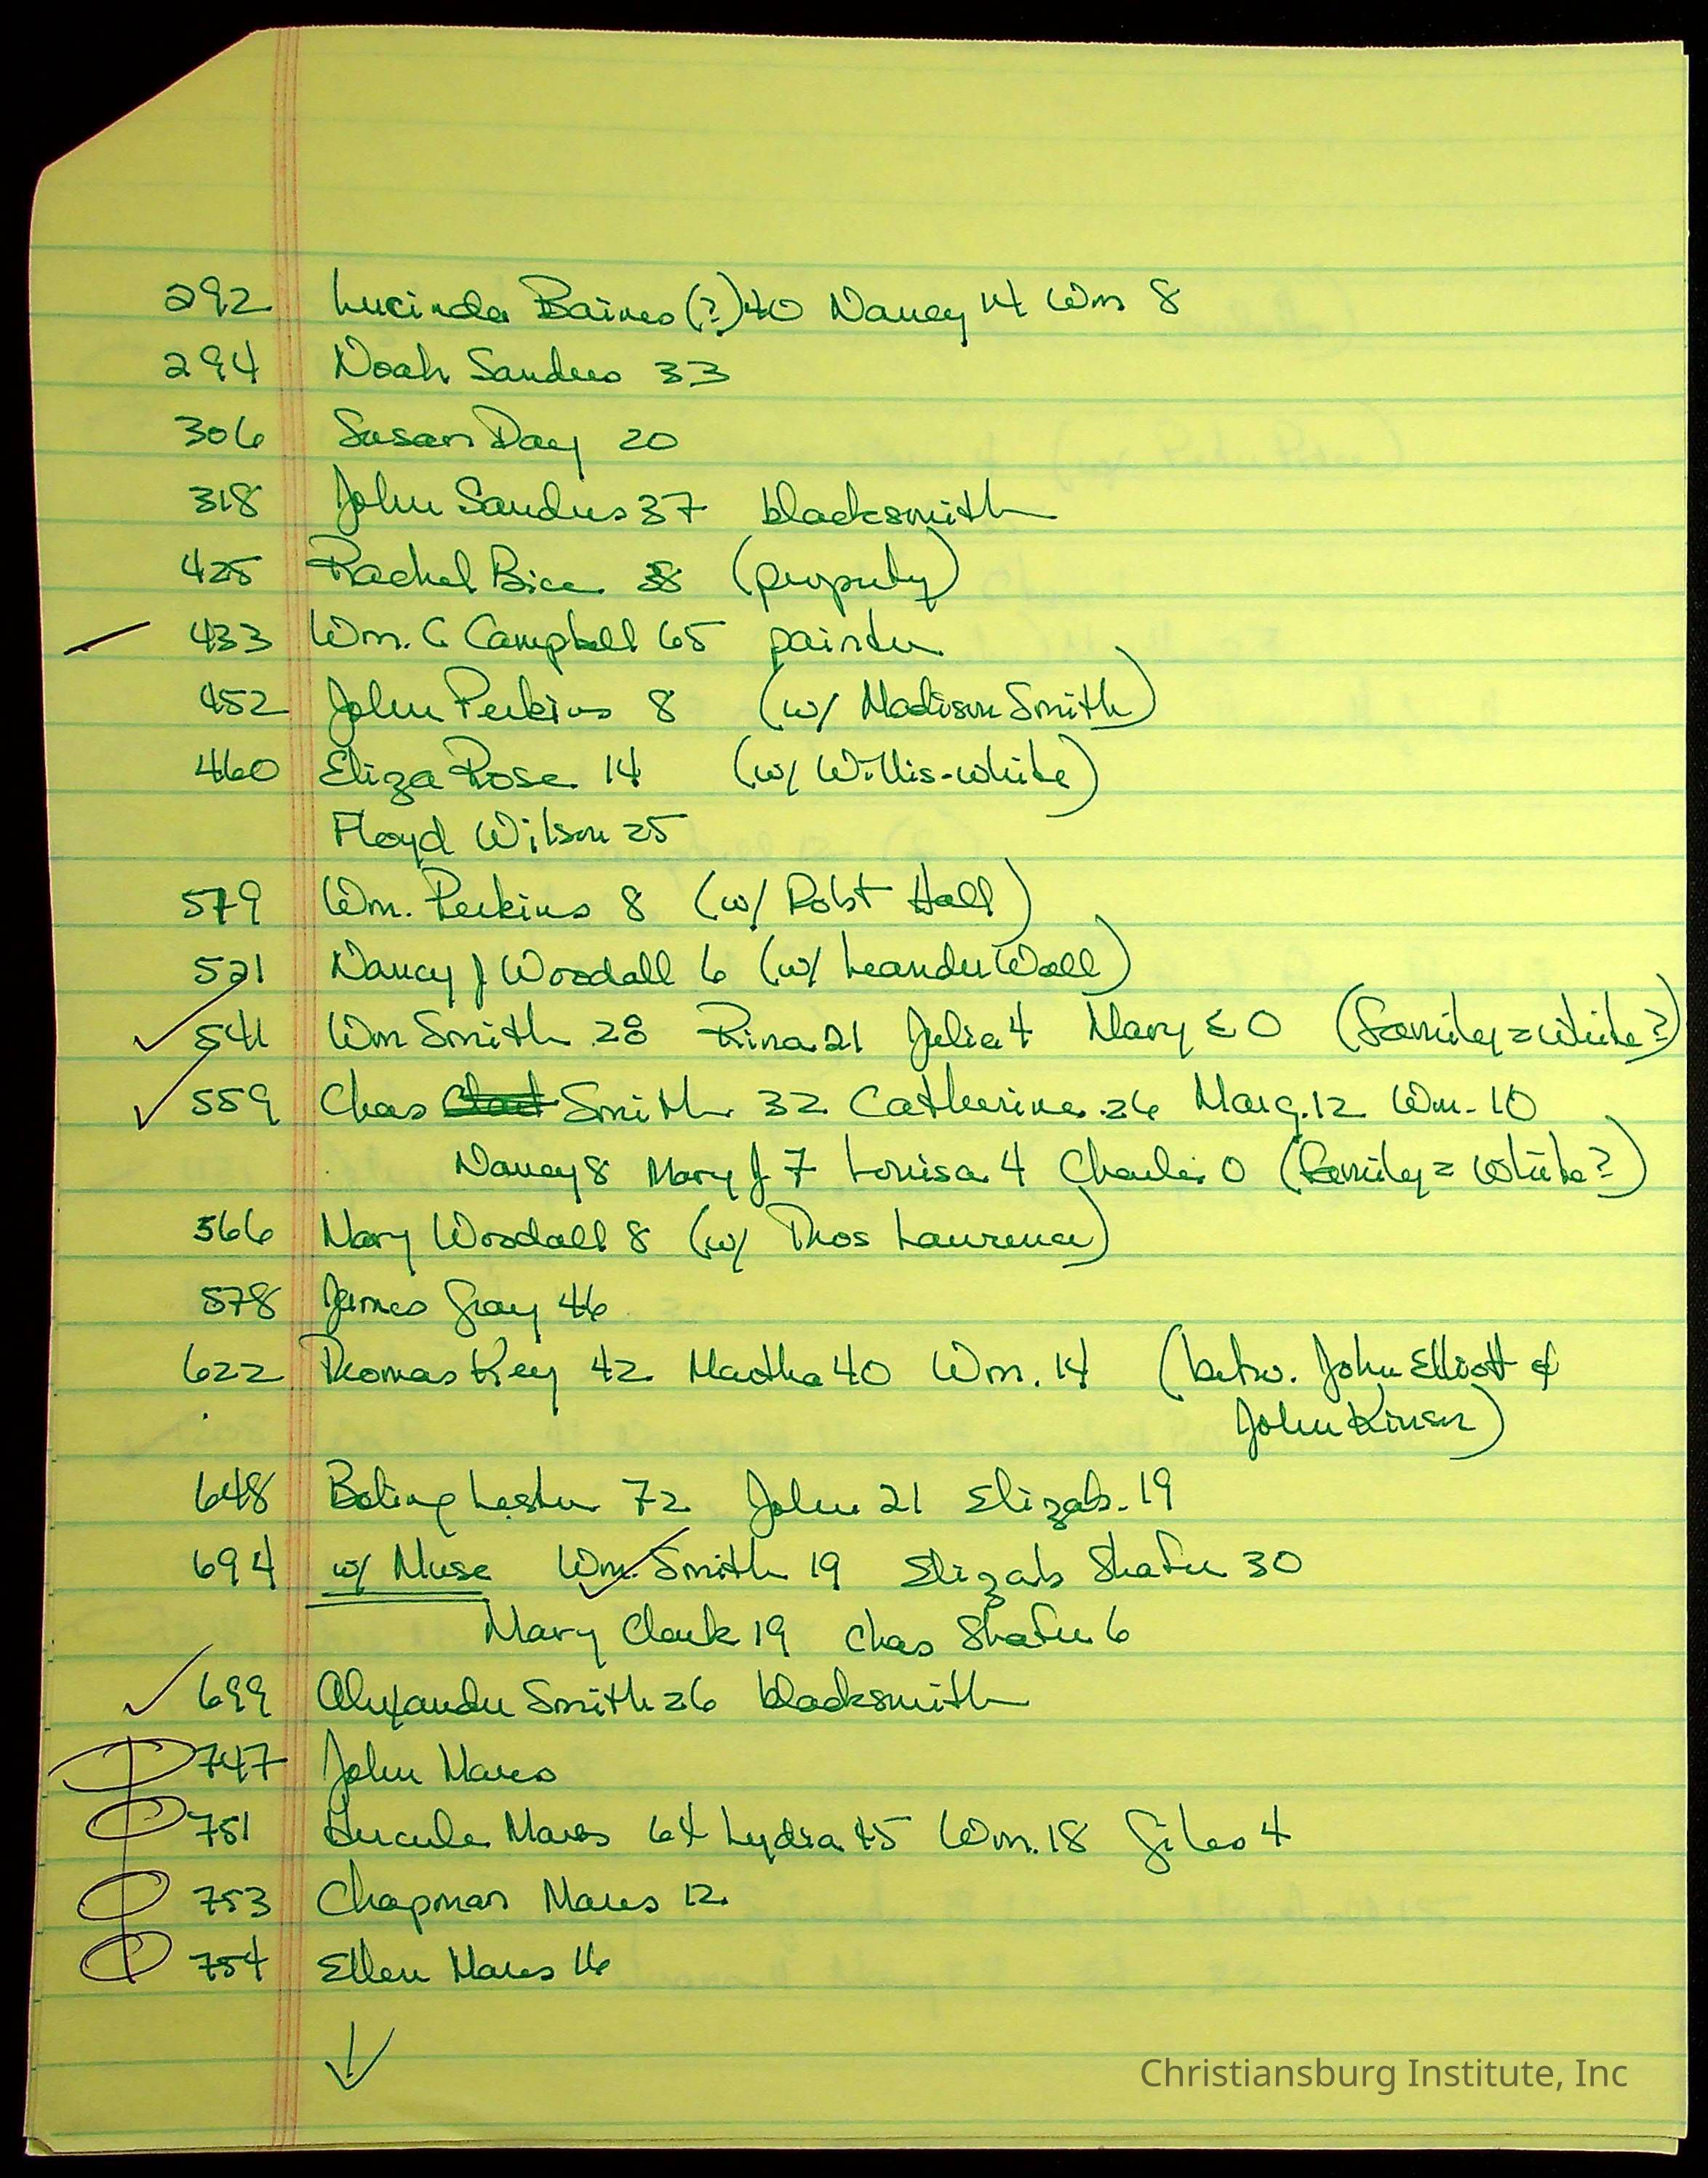 292 Lucinda Baines (?) 40 Nancy 14 Wm 8
294 Noah Sanders 33
306 Susan Day 20
318 John Sanders 37 blacksmith
425 Rachel Bice 38 (property)
433 Wm. C Campbell 65 painter
452 John Perkins 8 (w/ Madison Smith)
460 Eliza Rose 14 (w/ Willis-white)
Floyd Wilson 25
579 Wm. Perkins 8 (w/ Robt Hall)
521 Nancy J Woodall 6 (w/ Leander Wall)
541 Wm Smith 28 Rina 21 Julia 4 Mary E 0 (family = white?)
559 Chas Smith 32 Catherine 26 Marg. 12 Wm. 10
Nancy 8 Mary J. 7 Louisa 4 Charles 0 (family = white?)
566 Mary Woodall 8 (w/ Thos Laurence)
578 James Gray 46
622 Thomas Key 42 Martha 40 Wm. 14 (betw. John Elliott &
John Kinser)
648 Boling Lester 72 John 21 Elizab. 19
694 w/ Muse Wm. Smith 19 Elizab Shafer 30
Mary Clark 19 Chas Shafer 6
699 Alexander Smith 26 blacksmith
747 John Mares
751 Hercules Mares 64 Lydia 45 Wm. 18 Giles 4
753 Chapman Mares 12
754 Ellen Mares 16
Christiansburg Institute, Inc